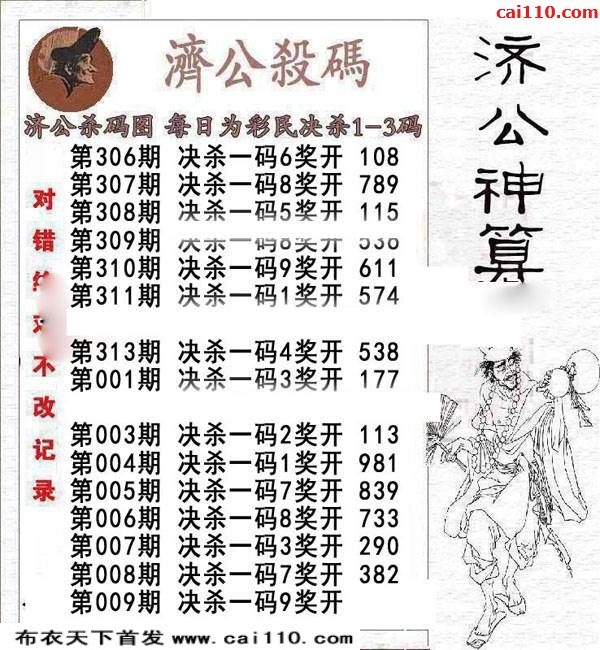 cai110.com
濟公殺碼
济公杀码图 每日为彩民决杀1-3码
第306期 决杀一码6奖开 108
第307期 决杀一码8奖开 789
第308期 决杀一码5奖开 115
第309期 决杀一码8奖开 536
第310期 决杀一码9奖开 611
第311期 决杀一码1奖开 574
第313期 决杀一码4奖开 538
第001期 决杀一码3奖开 177
第003期 决杀一码2奖开 113
第004期 决杀一码1奖开 981
第005期 决杀一码7奖开 839
第006期 决杀一码8奖开 733
第007期 决杀一码3奖开 290
第008期 决杀一码7奖开 382
第009期 决杀一码9奖开
对错绝对不改记录
济公神算
布衣天下首发 www.cai110.com